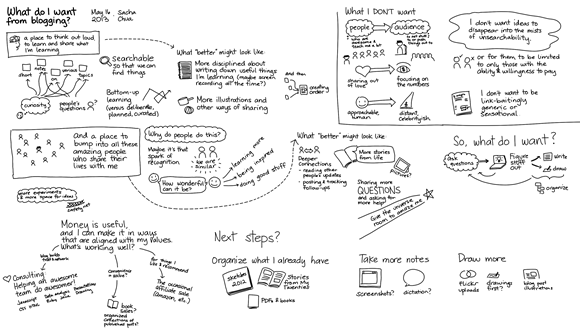 What do I want
from blogging?
May 16
2013
Sacha
Chua
a place to think out loud,
to learn and share what
I'm learning
short
notes
on
various
topics
curiosity
people's
questions
?
Searchable
so that we can
find things
Bottom-up
learning
(versus deliberate,
planned, curated)
What "better" might look like:
More disciplined about
writing down useful things
I'm learning (maybe screen
recording all the time?)
More illustrations and
other ways of sharing
and then
creating
order
What I DON'T want
people
audience
sharing out of
love
focusing on
the numbers
approachable
human
distant
celebrity-ish
I don't want ideas to
disappear into the mists
of unsearchability.
or for them to be limited
to only those with the
ability & willingness to pay
I don't want to
be link-baitingly
generic or
sensational.
And a place to
bump into all these
amazing people
who share their
lives with me
more experiments
& more space for ideas
safety net
Why do people do this?
Maybe it's that
spark of
recognition.
we are
similar!
How wonderful
can it be?
learning more
being inspired
doing good stuff
What "better" might look like:
Deeper
connections
- reading other
people's updates
- posting & tracking
follow-ups
More stories
from life
pictures?
Sharing more
QUESTIONS
and asking for
more help!
Give the universe
room to amaze me
So, what do I want?
ask
questions
Figure
stuff
out
write
draw
organize
Money is useful,
and I can make it in ways
that are aligned with my values.
What's working well?
Consulting
Helping an awesome
team do awesome!
book
sales?
organized
collections of
The occasional
affiliate sale
(Amazon, etc.)
for things I
like & recommend
Next steps?
Organize what I already have
sketches
2012
Stories
from My
Twenties
PDFs & books
Take more notes
screenshots?
dictation?
Draw more
flickr
uploads
drawings
first?
blog post
illustrations